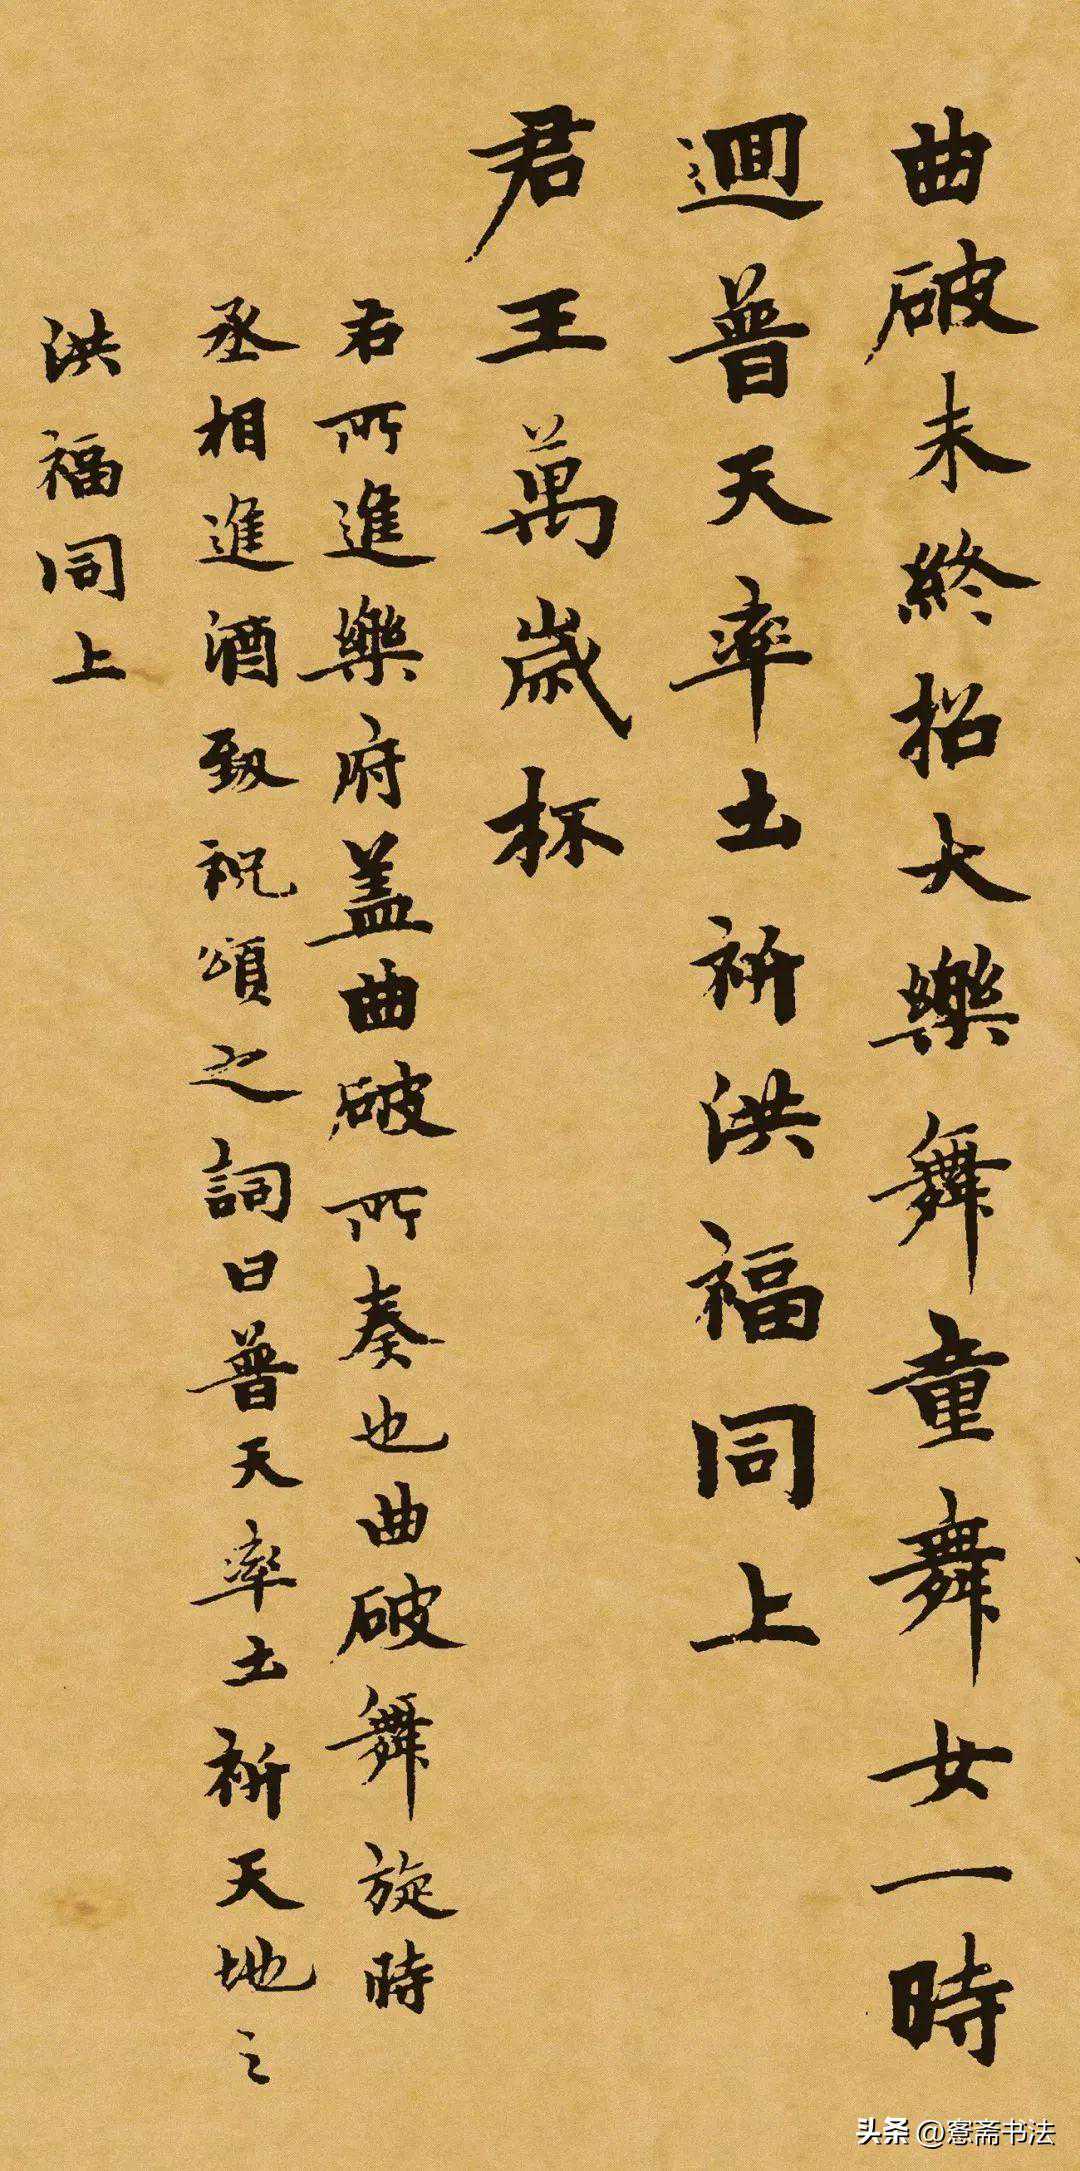 曲破未終招大樂舞童舞女一時
迴普天率土祈洪福同上
君王萬歲杯
君所進樂府蓋曲破所奏也曲破舞旋時
丞相進酒致祝頌之詞曰普天率土祈天地之
洪福同上
头条 @窓斋书法